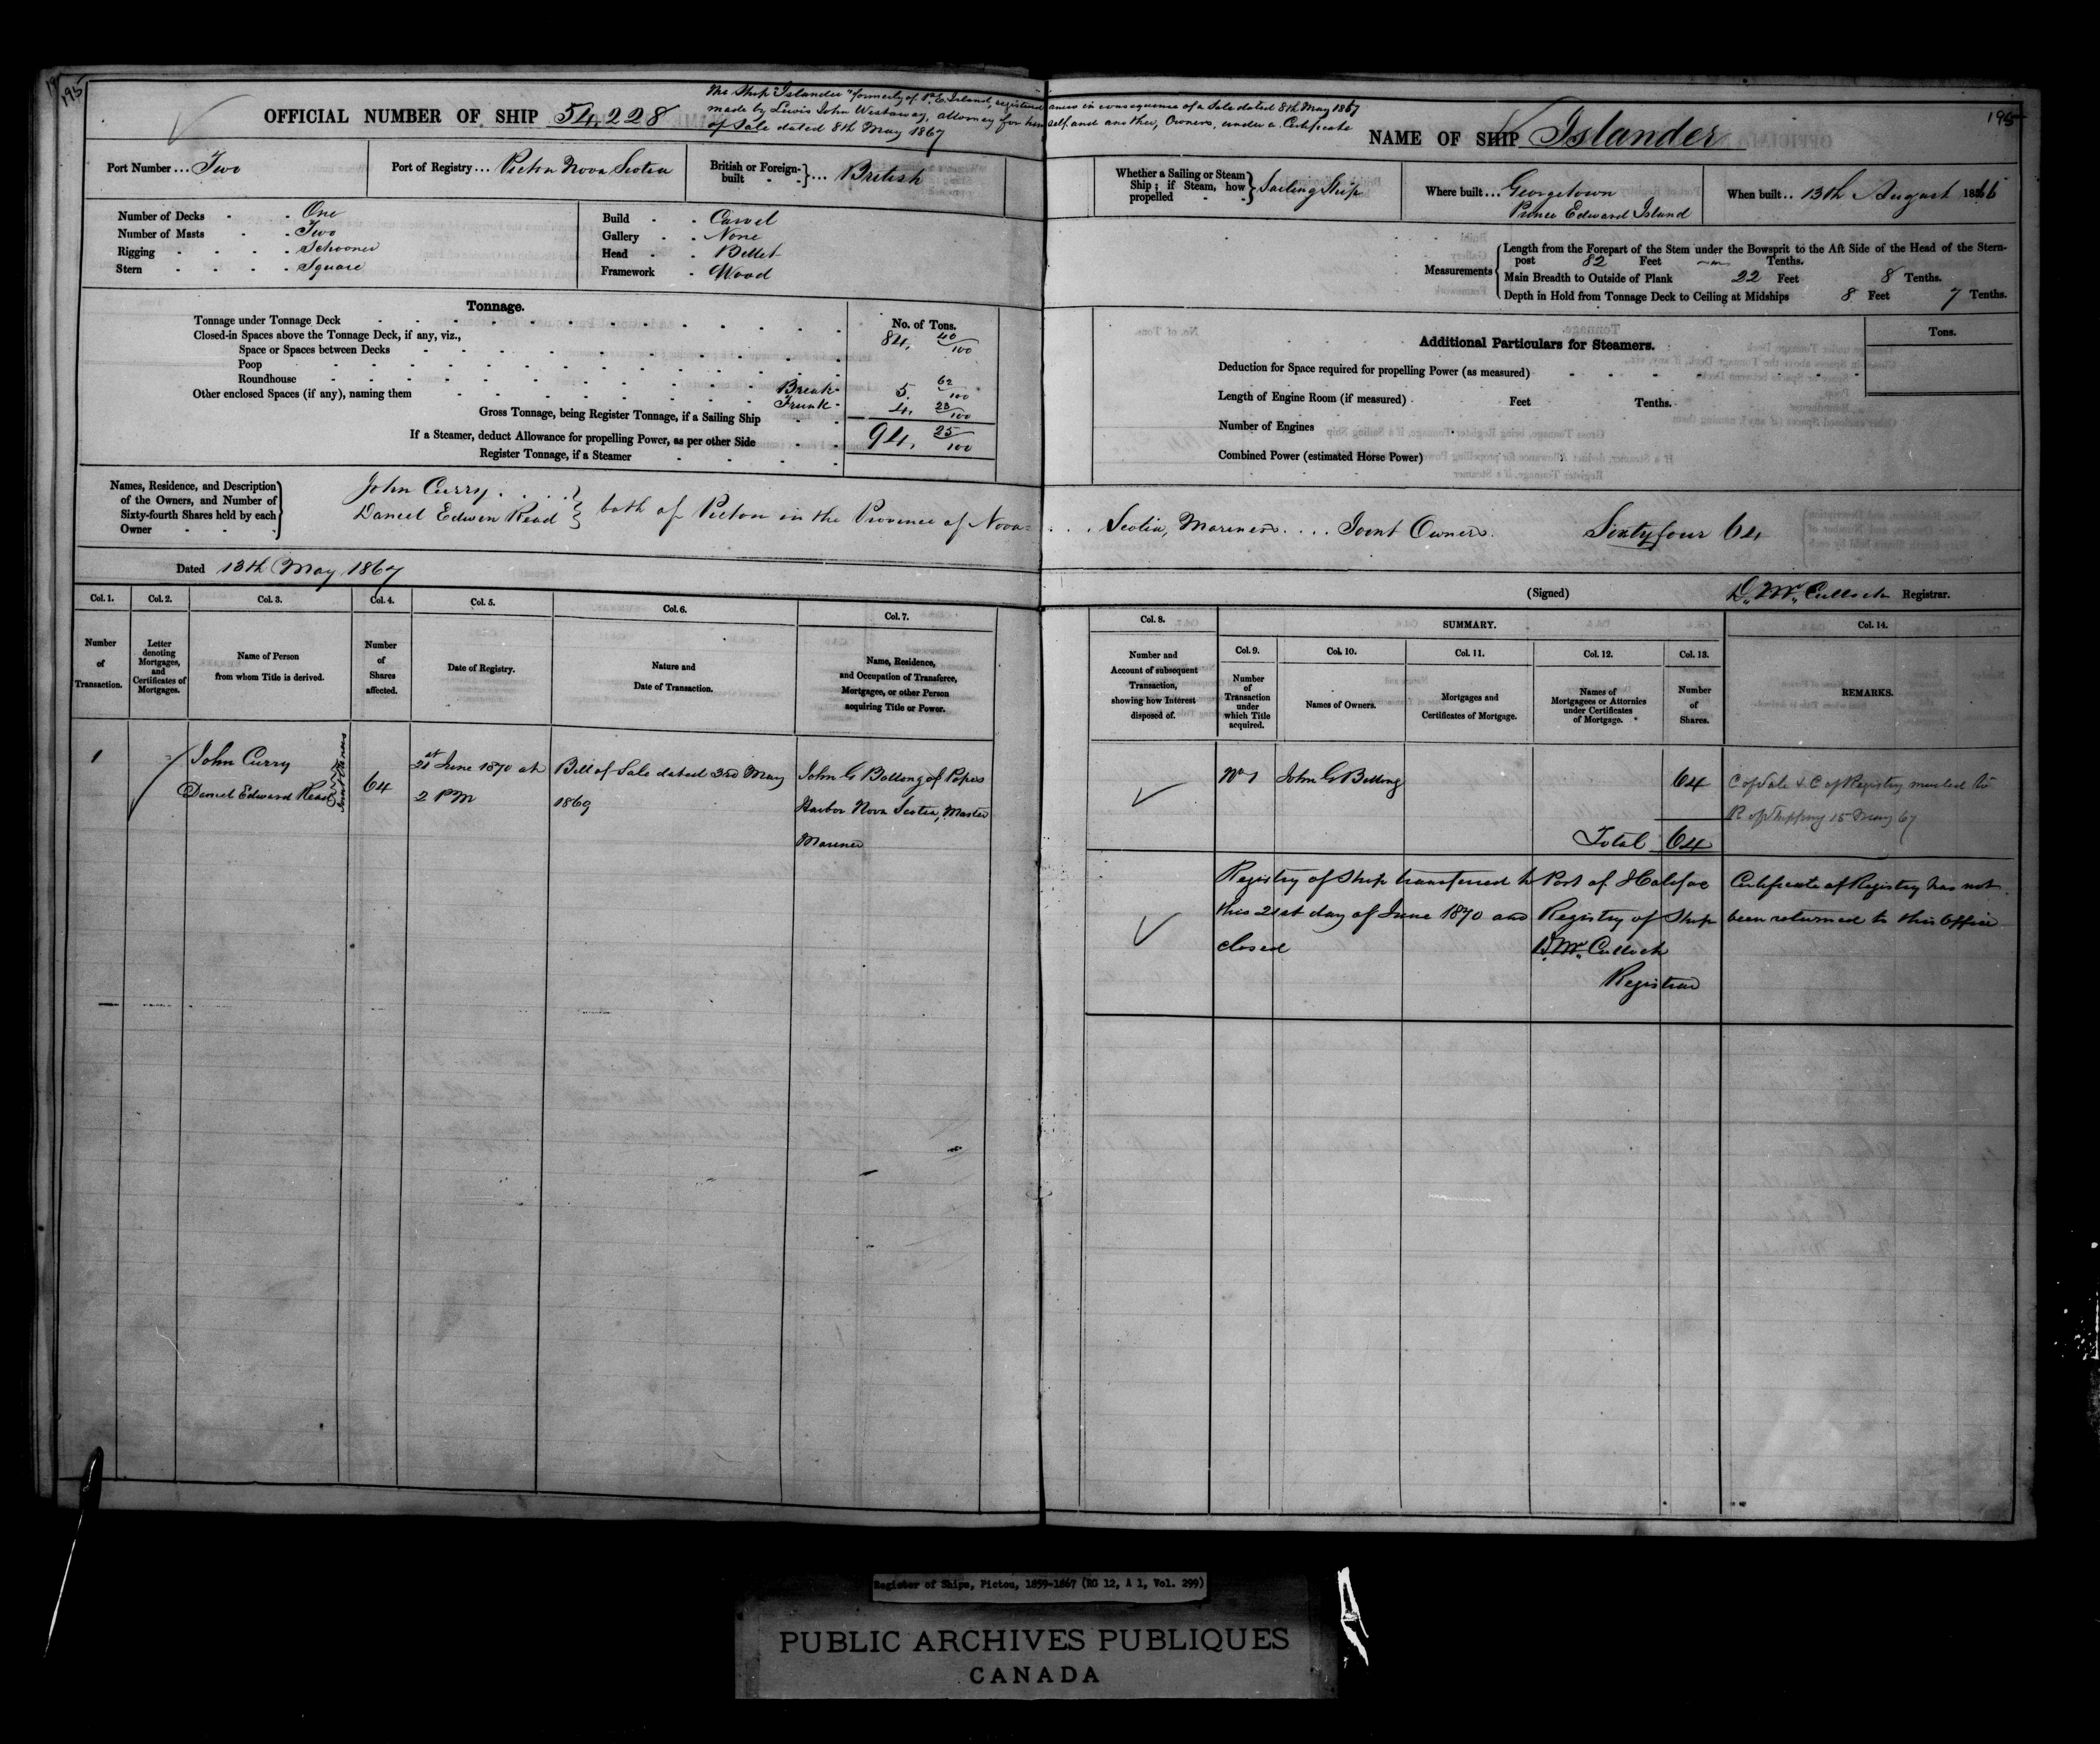 195
195
The Ship "Islander" formerly of P. E. Island, registered anew in consequence of a Sale dated 8th May 1867
made by Lewis John Westaway, attorney for himself and another, Owners, under a Certificate
of Sale dated 8th May 1867
OFFICIAL NUMBER OF SHIP 54,228
NAME OF SHIP Islander
Port Number ... Two
Port of Registry ... Pictou Nova Scotia
British or Foreign-built ... British
Whether a Sailing or Steam Ship; if Steam, how propelled Sailing Ship
Where built ... Georgetown
Prince Edward Island
When built .. 13th August 1866
Number of Decks - - One
Number of Masts - - Two
Rigging - - - - Schooner
Stern - - - - Square
Build - - Carvel
Gallery - - None
Head - - Billet
Framework - Wood
Measurements
Length from the Forepart of the Stem under the Bowsprit to the Aft Side of the Head of the Stern-
post 82 Feet Tenths.
Main Breadth to Outside of Plank 22 Feet 8 Tenths.
Depth in Hold from Tonnage Deck to Ceiling at Midships 8 Feet 7 Tenths.
Tonnage.
No. of Tons.
Tonnage under Tonnage Deck 84, 40/100
Closed-in Spaces above the Tonnage Deck, if any, viz.,
Space or Spaces between Decks
Poop
Roundhouse
Other enclosed Spaces (if any), naming them Break - 5, 62/100
Trunk - 4, 23/100
Gross Tonnage, being Register Tonnage, if a Sailing Ship 94, 25/100
If a Steamer, deduct Allowance for propelling Power, as per other Side
Register Tonnage, if a Steamer
Additional Particulars for Steamers.
Tons.
Deduction for Space required for propelling Power (as measured)
Length of Engine Room (if measured) Feet Tenths.
Number of Engines
Combined Power (estimated Horse Power)
Names, Residence, and Description
of the Owners, and Number of
Sixty-fourth Shares held by each
Owner
John Curry
Daniel Edwin Read
both of Pictou in the Province of Nova= . . . Scotia, Mariners .... Joint Owners. Sixty four 64
Dated 13th May 1867
(Signed) D. McCulloch Registrar.
Col. 1.
Number
of
Transaction.
Col. 2.
Letter
denoting
Mortgages,
and
Certificates of
Mortgages.
Col. 3.
Name of Person
from whom Title is derived.
Col. 4.
Number
of
Shares
affected.
Col. 5.
Date of Registry.
Col. 6.
Nature and
Date of Transaction.
Col. 7.
Name, Residence,
and Occupation of Transferee,
Mortgagee, or other Person
acquiring Title or Power.
Col. 8.
Number and
Account of subsequent
Transaction,
showing how Interest
disposed of.
SUMMARY.
Col. 9.
Number
of
Transaction
under
which Title
acquired.
Col. 10.
Names of Owners.
Col. 11.
Mortgages and
Certificates of Mortgage.
Col. 12.
Names of
Mortgagees or Attornies
under Certificates
of Mortgage.
Col. 13.
Number
of
Shares.
Col. 14.
REMARKS.
1
John Curry
Daniel Edward Read
Joint Owners
64
21st June 1870 at
2 PM
Bill of Sale dated 3rd May
1869
John G Bollong of Popes
Harbor Nova Scotia, Master
Mariner
No 1
John G Bollong
64
Total 64
C of Sale & C of Registry
R of Shipping 15 May 67
Registry of Ship transferred to Port of Halifax
this 21st day of June 1870 and Registry of Ship
closed
D. McCulloch
Registrar
Certificate of Registry has not
been returned to this Office
Register of Ships, Pictou, 1859-1867 (RG 12, A 1, Vol. 299)
PUBLIC ARCHIVES PUBLIQUES
CANADA